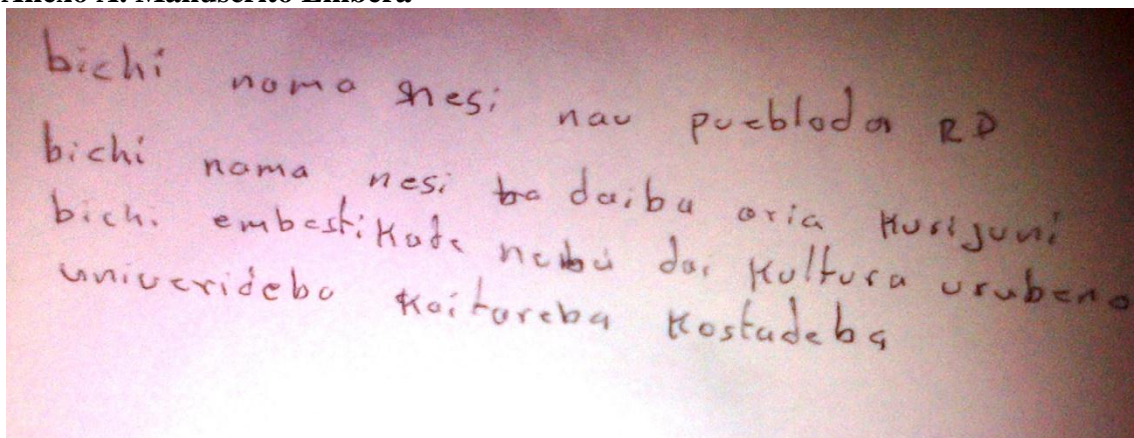 Anexo A. Manuscrito Embera
bichi nama nesi nau puebloda RD
bichi nama nesi ba daibu aria Kurijuni
bichi embestikada nebu dai Kultura urubena
univerideba Kaitareba Kostadeba